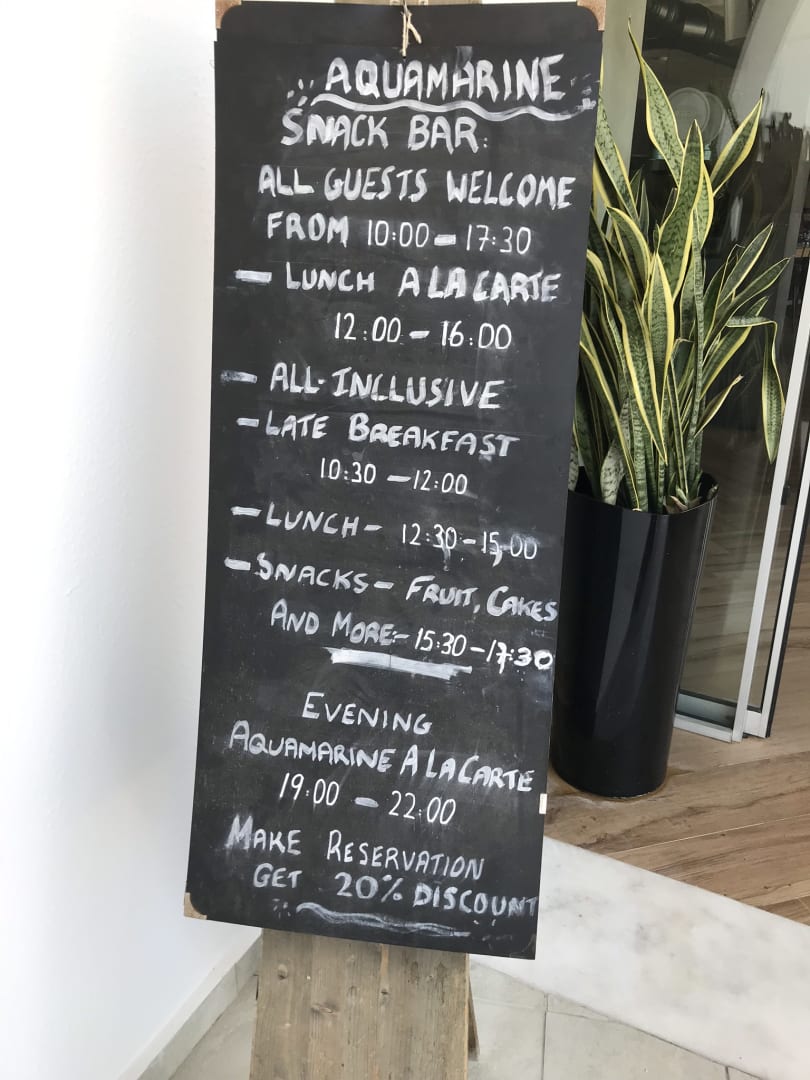 AQUAMARINE
SNACK BAR:
ALL GUESTS WELCOME
FROM 10:00 - 17:30
- LUNCH A LA CARTE
12:00 - 16:00
- ALL-INCLUSIVE
- LATE BREAKFAST
10:30 - 12:00
- LUNCH - 12:30 - 15,00
- SNACKS - FRUIT, CAKES
AND MORE:- 15:30 - 17:30
EVENING
AQUAMARINE A LA CARTE
19:00 - 22:00
MAKE RESERVATION
GET 20% DISCOUNT